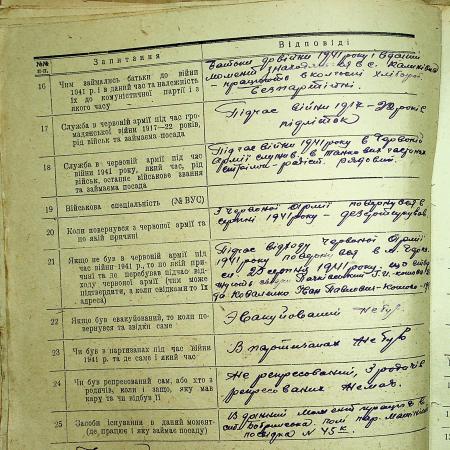 №№ п-п.
Запитання
Відповіді
16
Чим займались батьки до війни
1941 р. і в даний час та належність
їх до комуністичної партії і з
якого часу
Батьки до війни 1941 року і в даний
момент знаходяться в с.
працюють в колгоспі
безпартійні.
17
Служба в червоній армії під час гро-
мадянської війни 1917—22 років,
рід військ та займаєма посада
Під час війни 1917-22 років
підліток
18
Служба в червоній армії під час
війни 1941 року, який час, рід
військ, останнє військове звання
та займаєма посада
Під час війни 1941 року в Червоній
армії служив в танкових частинах
радіст. рядовий.
19
Військова спеціальність (№ ВУС)
20
Коли повернувся з червоної армії та
по якій причині
З Червоної Армії повернувся в
серпні 1941 року - дезертирував
21
Якщо не був в червоній армії під
час війни 1941 р., то по якій при-
чині та де перебував підчас від-
ходу червоної армії (чим може
підтвердити, з коли свідками то їх
адреса)
Під час відходу Червоної Армії
1941 року повернувся в м.
серпня 1941 року, що
свідки
та Коваленко Іван Павлович
22
Якщо був евакуйований, то коли по-
вернувся та звідки саме
Эвакуйований не був.
23
Чи був в партизанах під час війни
1941 р. та де саме і який час
В партизанах не був
24
Чи був репресований сам, або хто з
родичів, коли і защо, яку мав
кару та чи відбув її
Не репресований, з родичів
репресованих немає.
25
Засоби існування в даний момент
(де працює і яку займає посаду)
В даний момент працюю в
посвідка № 45